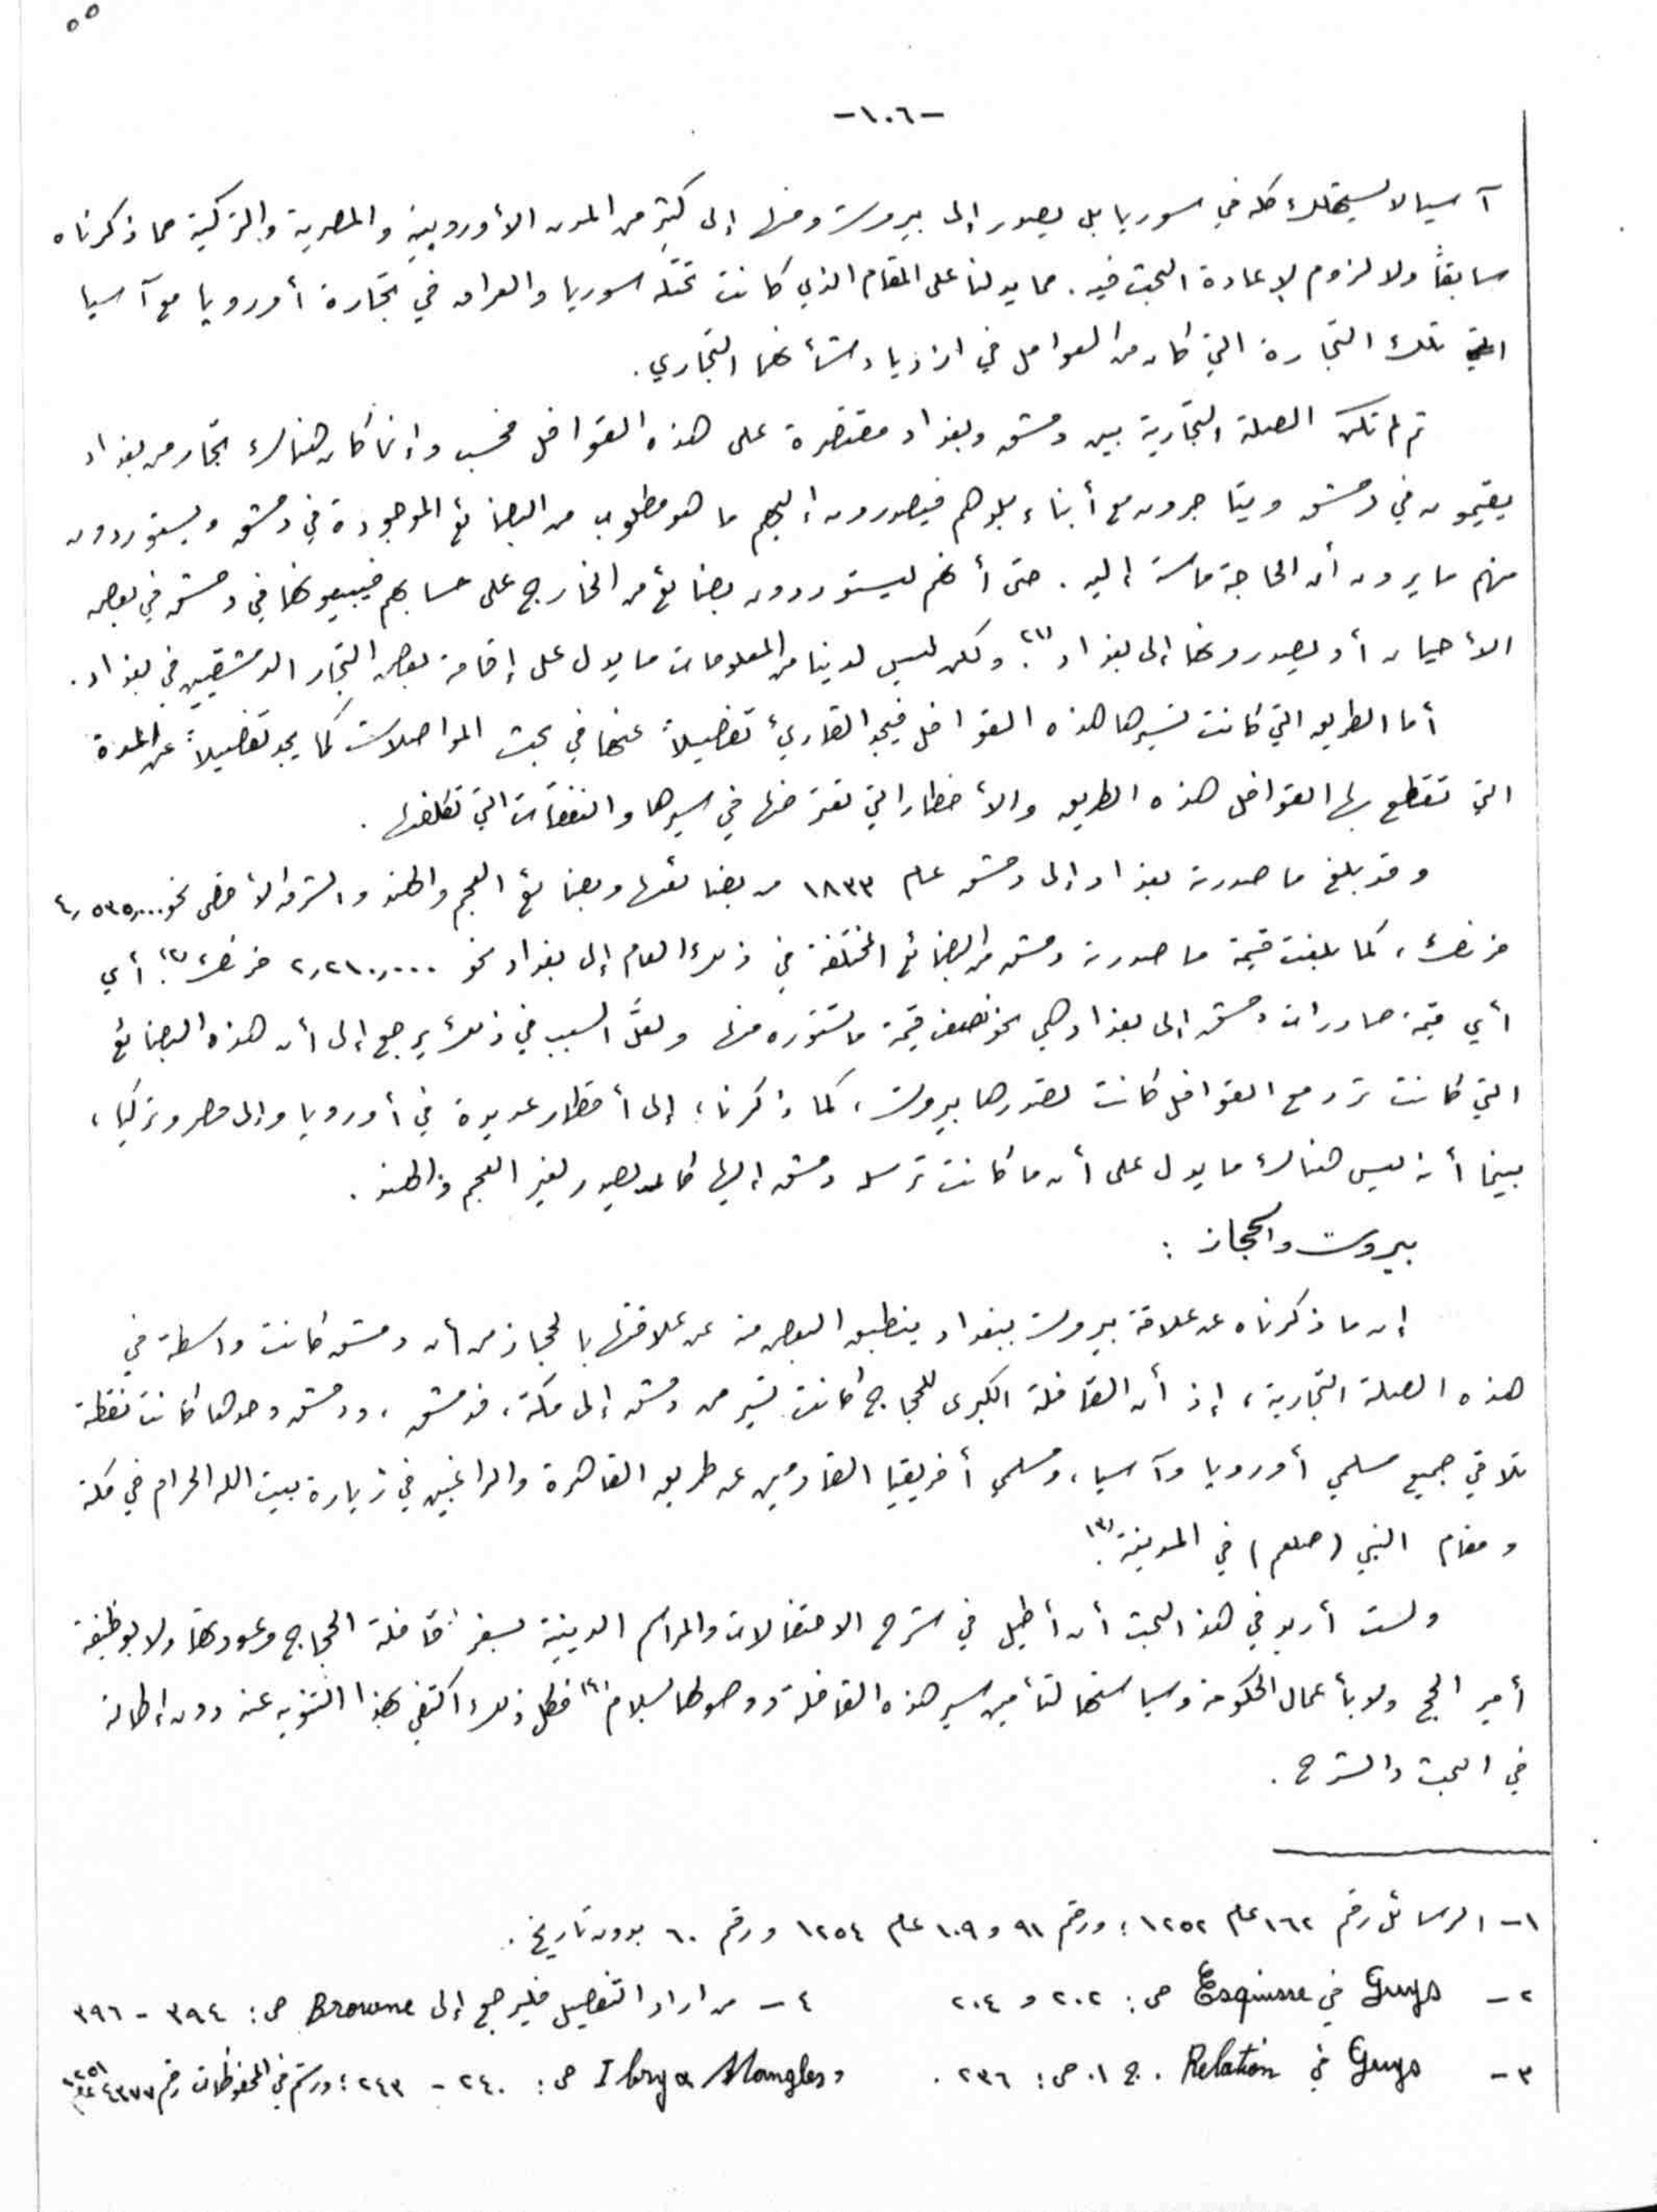 ٥٥
-١٠٦-
آسيا لا يستهلك كله في سوريا بل يصدر إلى بيروت ومنها إلى كثير من المدن الأوروبية والمصرية والتركية مما ذكرناه
سابقاً ولا لزوم لإعادة البحث فيه. مما يدلنا على المقام الذي كانت تحتله سوريا والعراق في تجارة أوروبا مع آسيا
تلك التجارة التي كان من العوامل في ازدياد شأنهما التجاري.
ثم لم تكن الصلة التجارية بين دمشق وبغداد مقتصرة على هذه القوافل فحسب وإنما كان هناك تجار من بغداد
يقيمون في دمشق ويتاجرون مع أبناء بلدهم فيصدرون إليهم ما هو مطلوب من البضائع الموجودة في دمشق ويستوردون
منهم ما يرون أن الحاجة ماسة إليه. حتى أنهم ليستوردون بضائع من الخارج على حسابهم فيبيعونها في دمشق في بعض
الأحيان أو يصدرونها إلى بغداد(١). ولكن ليس لدينا من المعلومات ما يدل على إقامة بعض التجار الدمشقيين في بغداد.
أما الطريق التي كانت تسيرها هذه القوافل فيجد القارئ تفصيلاً عنها في بحث المواصلات كما يجد تفصيلاً عن المدة
التي تقطع بها القوافل هذه الطريق والأخطار التي تعترضها في سيرها والنفقات التي تكلفها.
وقد بلغ ما صدرته بغداد إلى دمشق عام ١٨٣٣ من بضائعها وبضائع العجم والهند والشرق الأقصى نحو ٤,٥٣٥,٠٠٠
فرنك، كما بلغت قيمة ما صدرته دمشق من البضائع المختلفة في ذلك العام إلى بغداد نحو ٢,٢١٠,٠٠٠ فرنك(٢). أي
أي قيمة صادرات دمشق إلى بغداد هي نحو نصف قيمة ما تستورده منها ولعلَّ السبب في ذلك يرجع إلى أن هذه البضائع
التي كانت ترد مع القوافل كانت تصدرها بيروت، كما ذكرنا، إلى أقطار عديدة في أوروبا وإلى مصر وتركيا،
بينما أنه ليس هناك ما يدل على أن ما كانت ترسله دمشق إليها كان يصدر لغير العجم والهند.
بيروت والحجاز :
إن ما ذكرناه عن علاقة بيروت ببغداد ينطبق البعض منه عن علاقتها بالحجاز من أن دمشق كانت واسطة في
هذه الصلة التجارية، إذ أن القافلة الكبرى للحجاج كانت تسير من دمشق إلى مكة، فدمشق، ودمشق وحدها كانت نقطة
تلاقي جميع مسلمي أوروبا وآسيا، ومسلمي أفريقيا القادمين عن طريق القاهرة والراغبين في زيارة بيت الله الحرام في مكة
ومقام النبي (صلعم) في المدينة(٣).
ولست أريد في هذا البحث أن أطيل في شرح الاحتفالات والمراسم الدينية بسفر قافلة الحجاج وعودتها ولا بوظيفة
أمير الحج ولا بأعمال الحكومة وسياستها لتأمين سير هذه القافلة ووصولها بسلام(٤) فكل ذلك اكتفي بهذا التنويه عنه دون إطالة
في البحث والشرح.
١- الرسائل رقم ١٦٢ عام ١٢٥٢؛ ورقم ٩١ و ١٠٩ عام ١٢٥٤ ورقم ٦٠ بدون تاريخ.
٢- Guys في Esquisse ص: ٢٠٢ و ٢٠٤
٣- Guys في Relation. ج ١. ص: ٢٣٦.
٤- من اراد التفصيل فليرجع إلى Browne ص: ٣٩٤ - ٣٩٦
و Irby & Mangles ص: ٢٤٠ - ٢٤٣؛ ورستم في المحفوظات رقم ٤٣٧٧ عام ١٢٥١